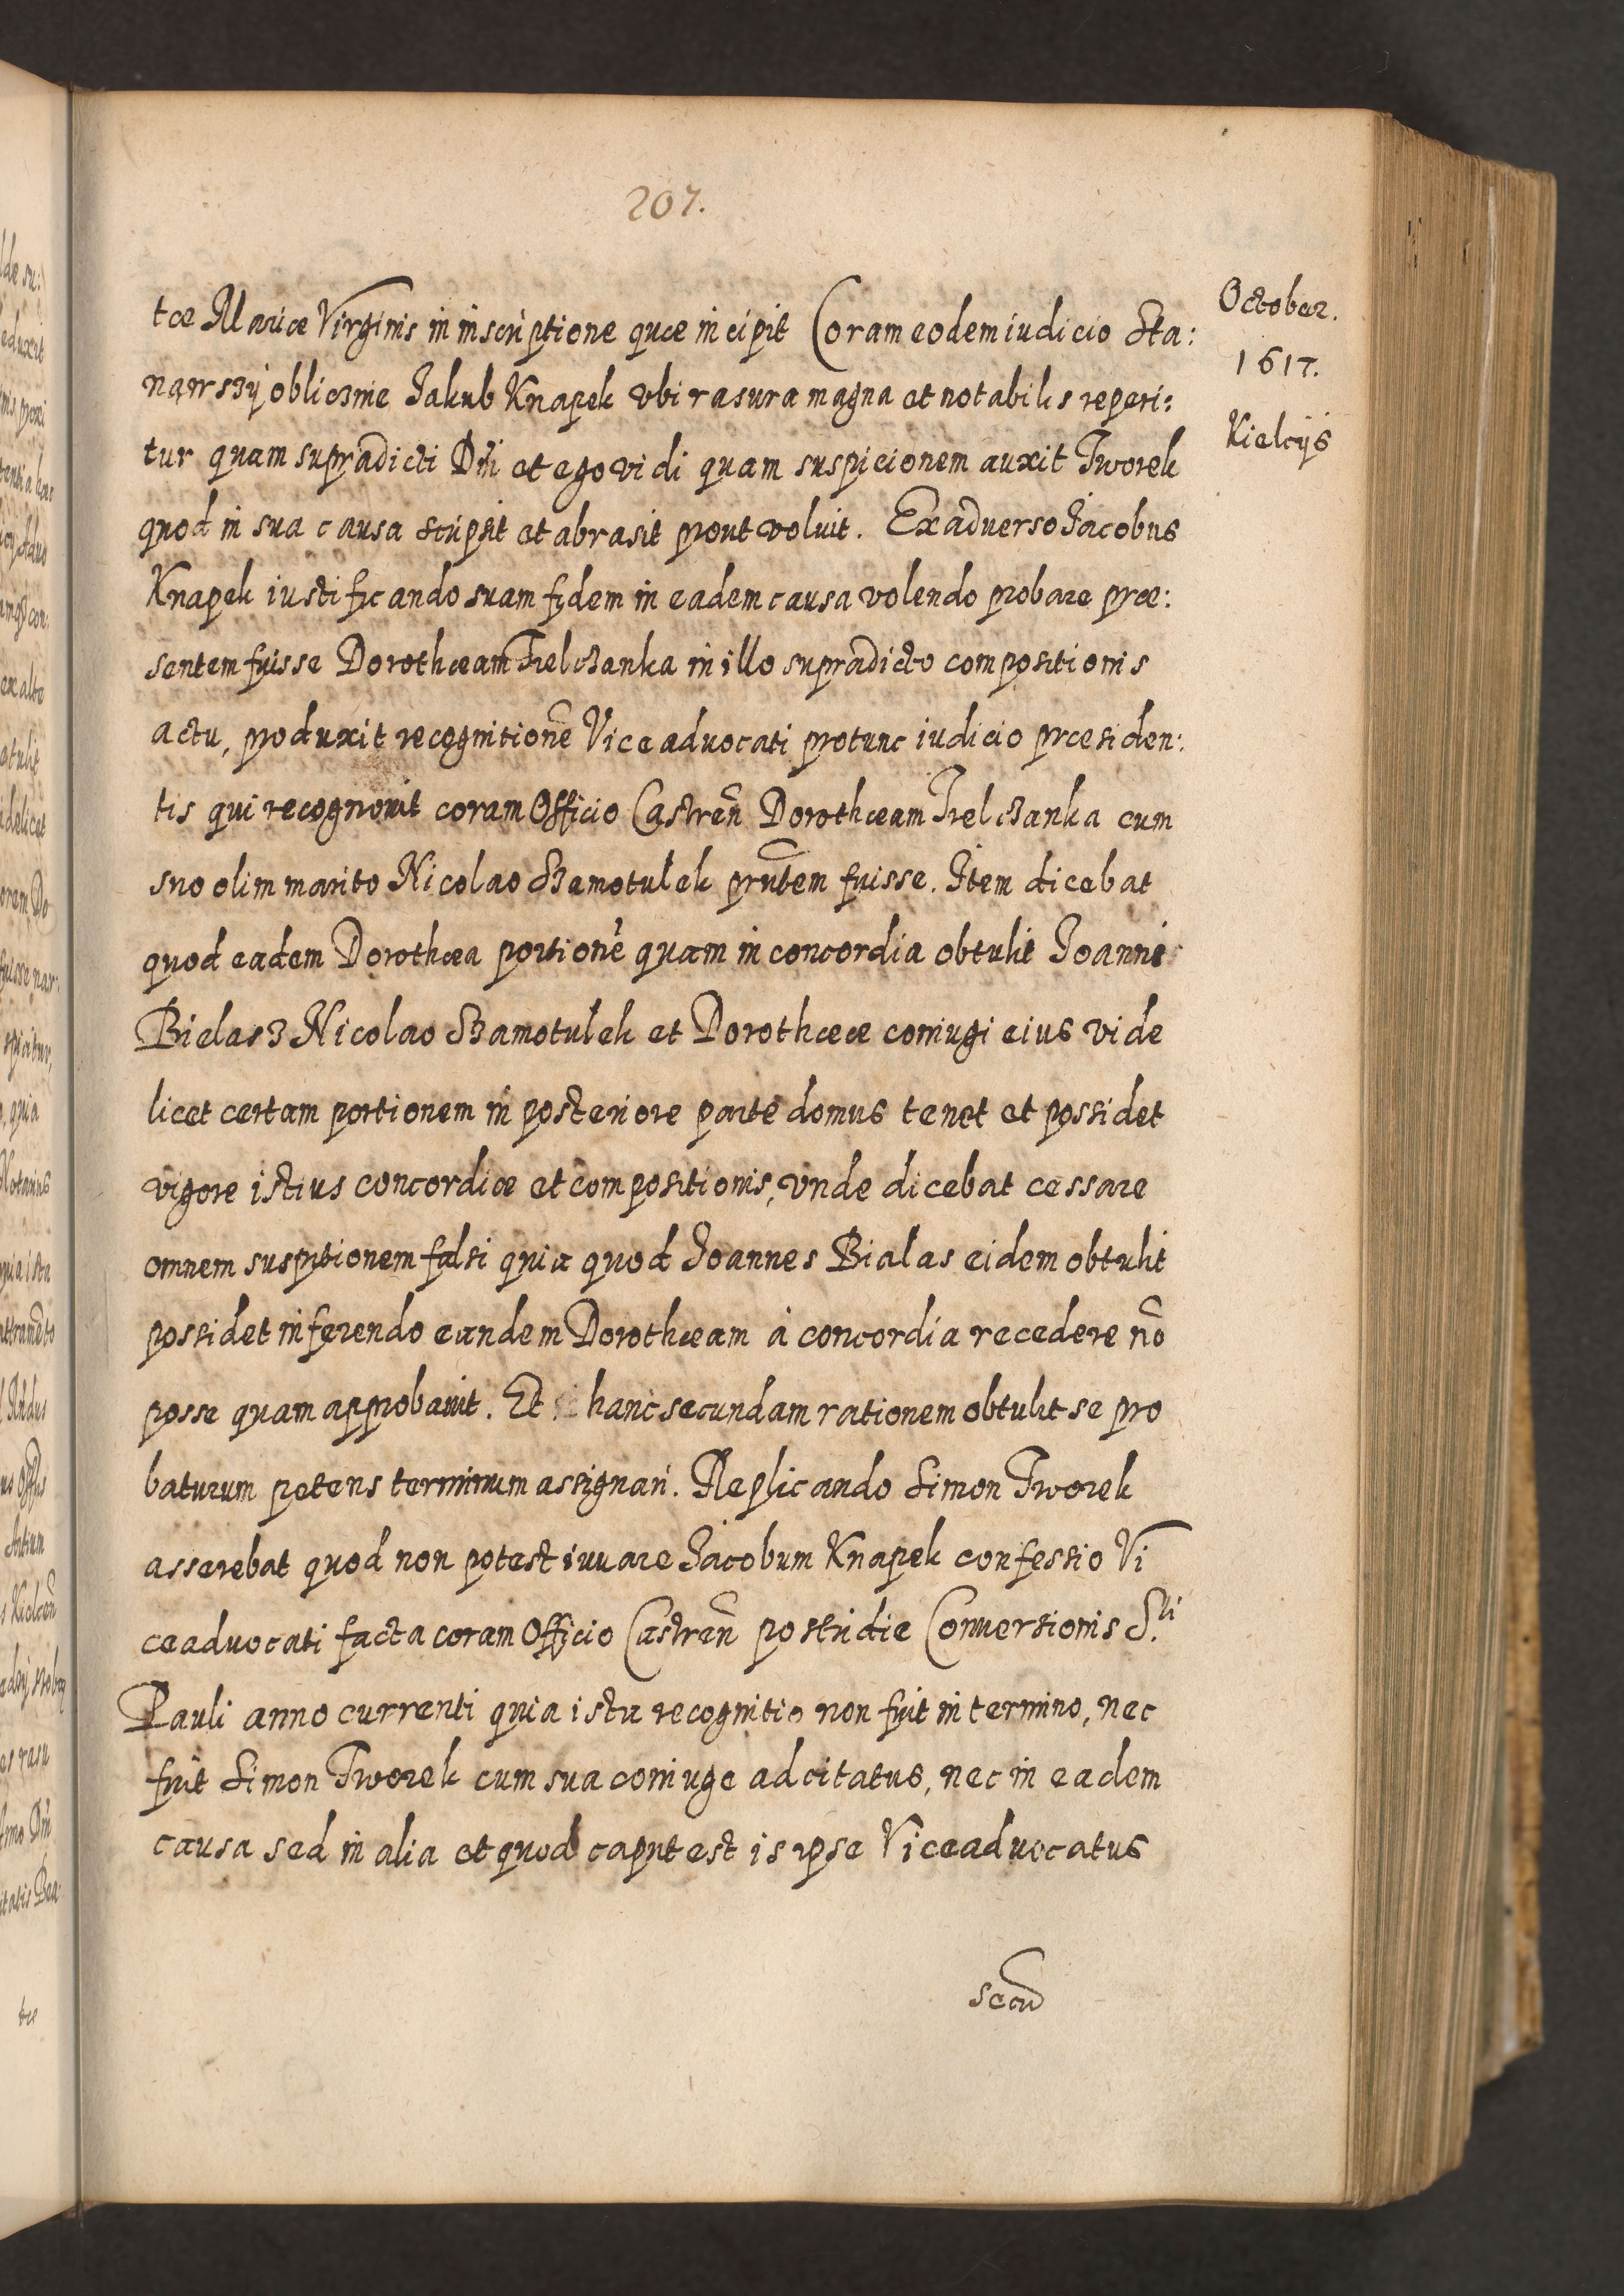 207.
October.
1617.
Kielcijs
tæ Mariæ Virginis in inscriptione quæ incipit Coram eodem iudicio Sta:
nąwszÿ oblicznie Jakub Knapek vbi rasura magna et notabilis reperi:
tur quam supradicti Dni et ego vidi quam suspicionem auxit Tworek
quod in sua causa scripsit et abrasit prout voluit. Ex aduerso Jacobus
Knapek iustificando suam fidem in eadem causa volendo probare præ:
sentem fuisse Dorothæam Trelczanka in illo supradicto compositionis
actu, produxit recognitionē Viceaduocati protunc iudicio præsiden:
tis qui recognouit coram Officio Castren̄ Dorothæam Trelczanka cum
suo olim marito Nicolao Szamotulek prn̄tem fuisse. Item dicebat
quod eadem Dorothæa portionē quam in concordia obtulit Joannes
Bielasz Nicolao Szamotulek et Dorothææ coniugi eius vide
licet certam portionem in posteriore parte domus tenet et possidet
vigore istius concordiæ et compositionis, vnde dicebat cessare
omnem suspitionem falsi quia quod Joannes Bialas eidem obtulit
possidet inferendo eandem Dorothæam à concordia recedere nō
posse quam approbauit. Et hanc secundam rationem obtulit se pro
baturum petens terminum assignari. Replicando Simon Tworek
asserebat quod non potest iuuare Jacobum Knapek confessio Vi
ceaduocati facta coram Officio Castren̄ postridie Conuersionis S.ti
Pauli anno currenti quia ista recognitio non fuit in termino, nec
fuit Simon Tworek cum sua coniuge adcitatus, nec in eadem
causa sed in alia et quod caput est is ipse Viceaduocatus
secū